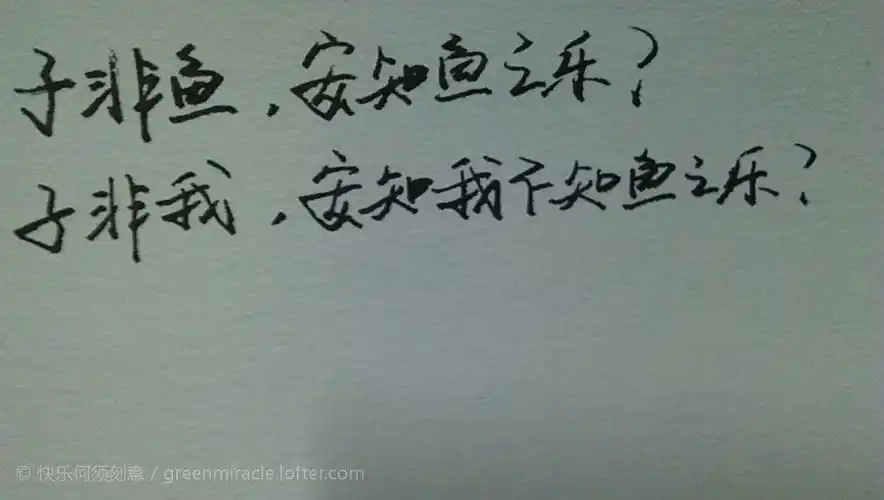 子非鱼，安知鱼之乐？
子非我，安知我不知鱼之乐？
© 快乐何须刻意 / greenmiracle.lofter.com